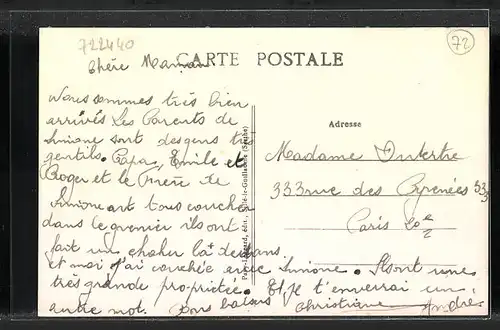 722440
72
CARTE POSTALE
Chère Maman
Nous sommes très bien
arrivés Les Parents de
Simone sont des gens très
gentils. Papa, Emile et
Roger et le Frère de
Simone ont tous couchés
dans le grenier ils ont
fait un chahut là dedans
et moi j'ai couchée avec Simone. Ils ont une
très grande propriétée. Et je t'enverrai un
autre mot. Bons baisers
Christiane André
Adresse
Madame Dutertre
333 rue des Pyrénées 333
Paris 20e